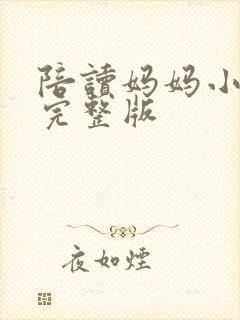 陪讀妈妈小
完整版
夜如煙